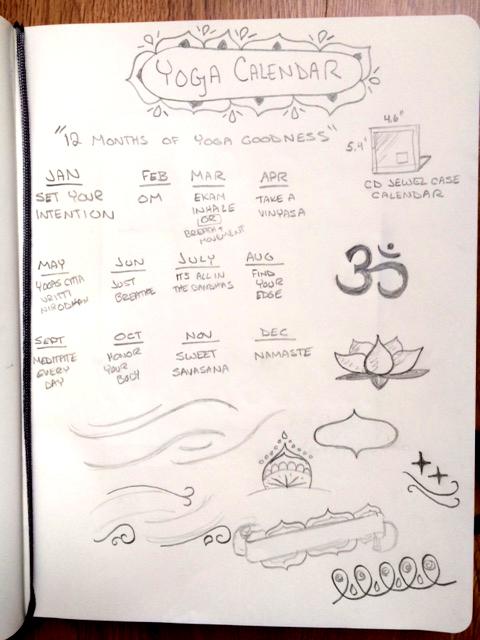 YOGA CALENDAR
"12 MONTHS OF YOGA GOODNESS"
4.6"
5.4"
CD JEWEL CASE
CALENDAR
JAN
SET YOUR
INTENTION
FEB
OM
MAR
EKAM
INHALE
OR
BREATH +
MOVEMENT
APR
TAKE A
VINYASA
MAY
CITTA
VRITTI
NIRODHAH
JUN
JUST
BREATHE
JULY
IT'S ALL IN
THE BANDHAS
AUG
FIND
YOUR
EDGE
SEPT
MEDITATE
EVERY
DAY
OCT
HONOR
YOUR
BODY
NOV
SWEET
SAVASANA
DEC
NAMASTE
ॐ